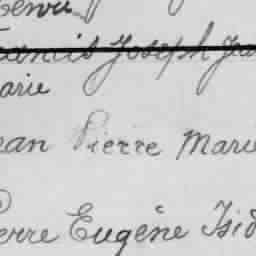 Francis Joseph Jea
arie
ean Pierre Marie
Pierre Eugène Isid